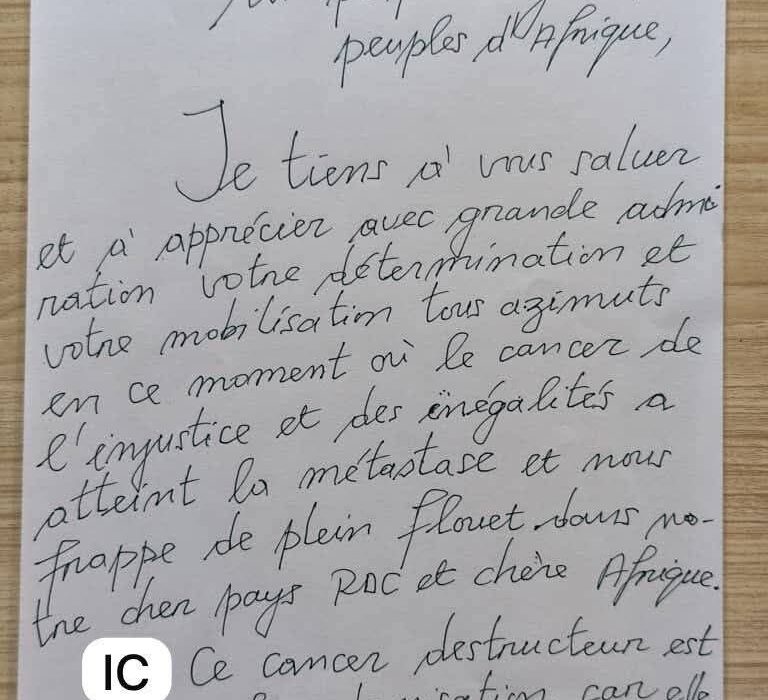 peuples d'Afrique,
Je tiens à vous saluer
et à apprécier avec grande admi
ration votre détermination et
votre mobilisation tous azimuts
en ce moment où le cancer de
l'injustice et des inégalités a
atteint la métastase et nous
frappe de plein flouet dans no-
tre cher pays RDC et chère Afrique.
IC Ce cancer destructeur est
car elle